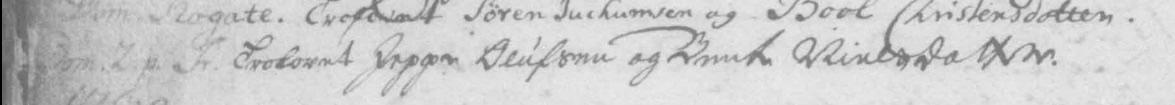 Dom. Rogate. Trolovet Søren Juchumsen og Bool Christensdotter.
Dom. 2 p. Tr. Trolovet Jeppe Olufsen og Nielsdatter.